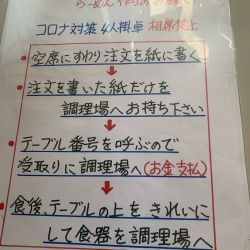 らーめん作りのお願い
コロナ対策 4人掛卓 相席禁止
空席にすわり注文を紙に書く
注文を書いた紙だけを
調理場へお持ち下さい
テーブル番号を呼ぶので
受取りに調理場へ(お金支払)
食後、テーブルの上をきれいに
して食器を調理場へ